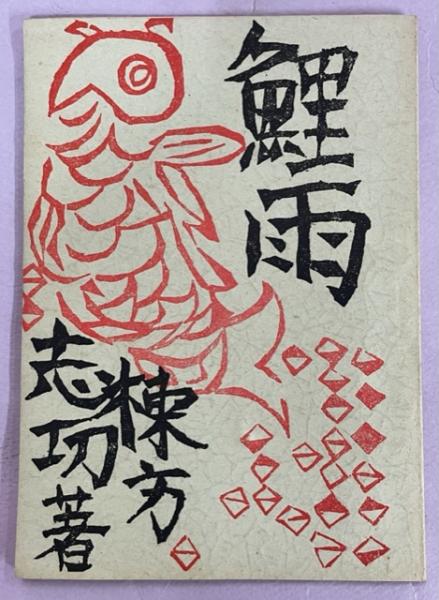 鯉雨
棟方
志功著